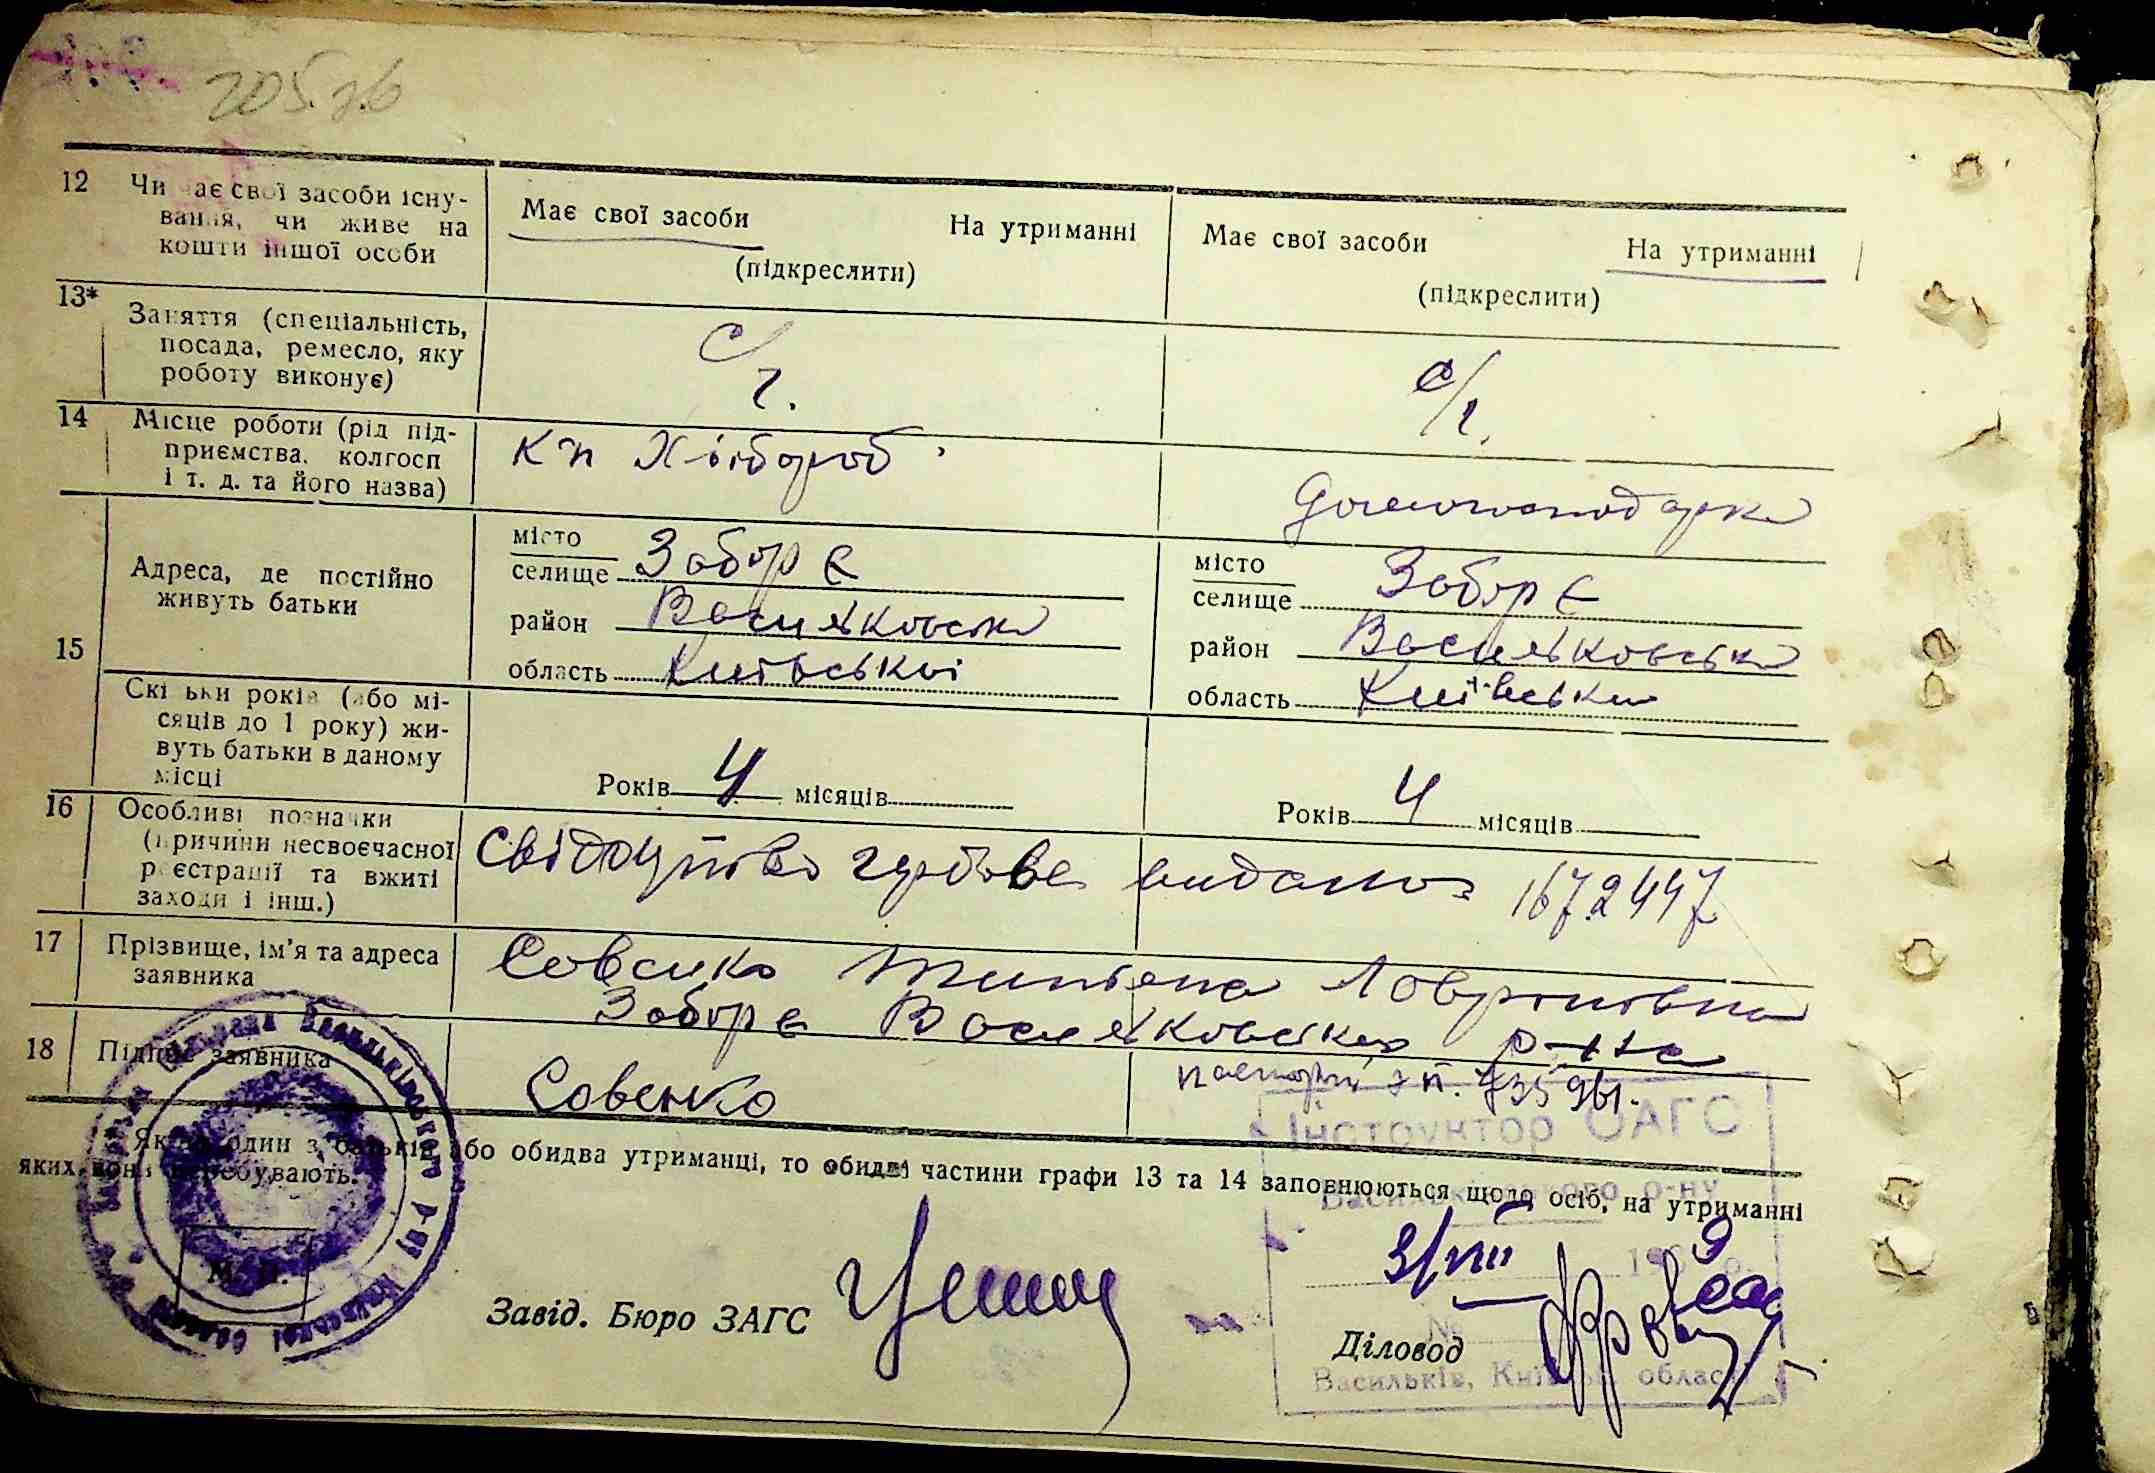 12 Чи має свої засоби існу-
вання, чи живе на
кошти іншої особи
Має свої засоби На утриманні
(підкреслити)
Має свої засоби На утриманні
(підкреслити)
13* Заняття (спеціальність,
посада, ремесло, яку
роботу виконує)
с/г.
с/г.
14 Місце роботи (рід під-
приємства, колгосп
і т. д. та його назва)
кп Хлібороб
Домогосподарка
15 Адреса, де постійно
живуть батьки
місто
селище Заборє
район
область Київської
місто
селище Заборє
район
область
Скільки років (або мі-
сяців до 1 року) жи-
вуть батьки в даному
місці
Років 4 місяців
Років 4 місяців
16 Особливі позначки
(причини несвоєчасної
реєстрації та вжиті
заходи і інш.)
Свідоцтво гербове видано 1672447
17 Прізвище, ім'я та адреса
заявника
Титяна
Заборє р-на
18 Підпис заявника
Совенко
паспорт 735961.
Якщо один з батьків або обидва утриманці, то обидві частини графи 13 та 14 заповнюються щодо осіб, на утриманні
яких вони перебувають.
Інструктор ЗАГС
Васильківського р-ну
3/VIII 196 9 р.
№
Васильків, Київськ. області
М. П.
Завід. Бюро ЗАГС
Діловод